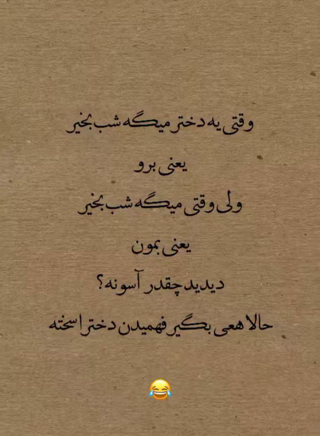 وقتی یه دختر میگه شب بخیر
یعنی برو
ولی وقتی میگه شب بخیر
یعنی بمون
دیدید چقدر آسونه؟
حالا هعی بگیر فهمیدن دخترا سخته
😂